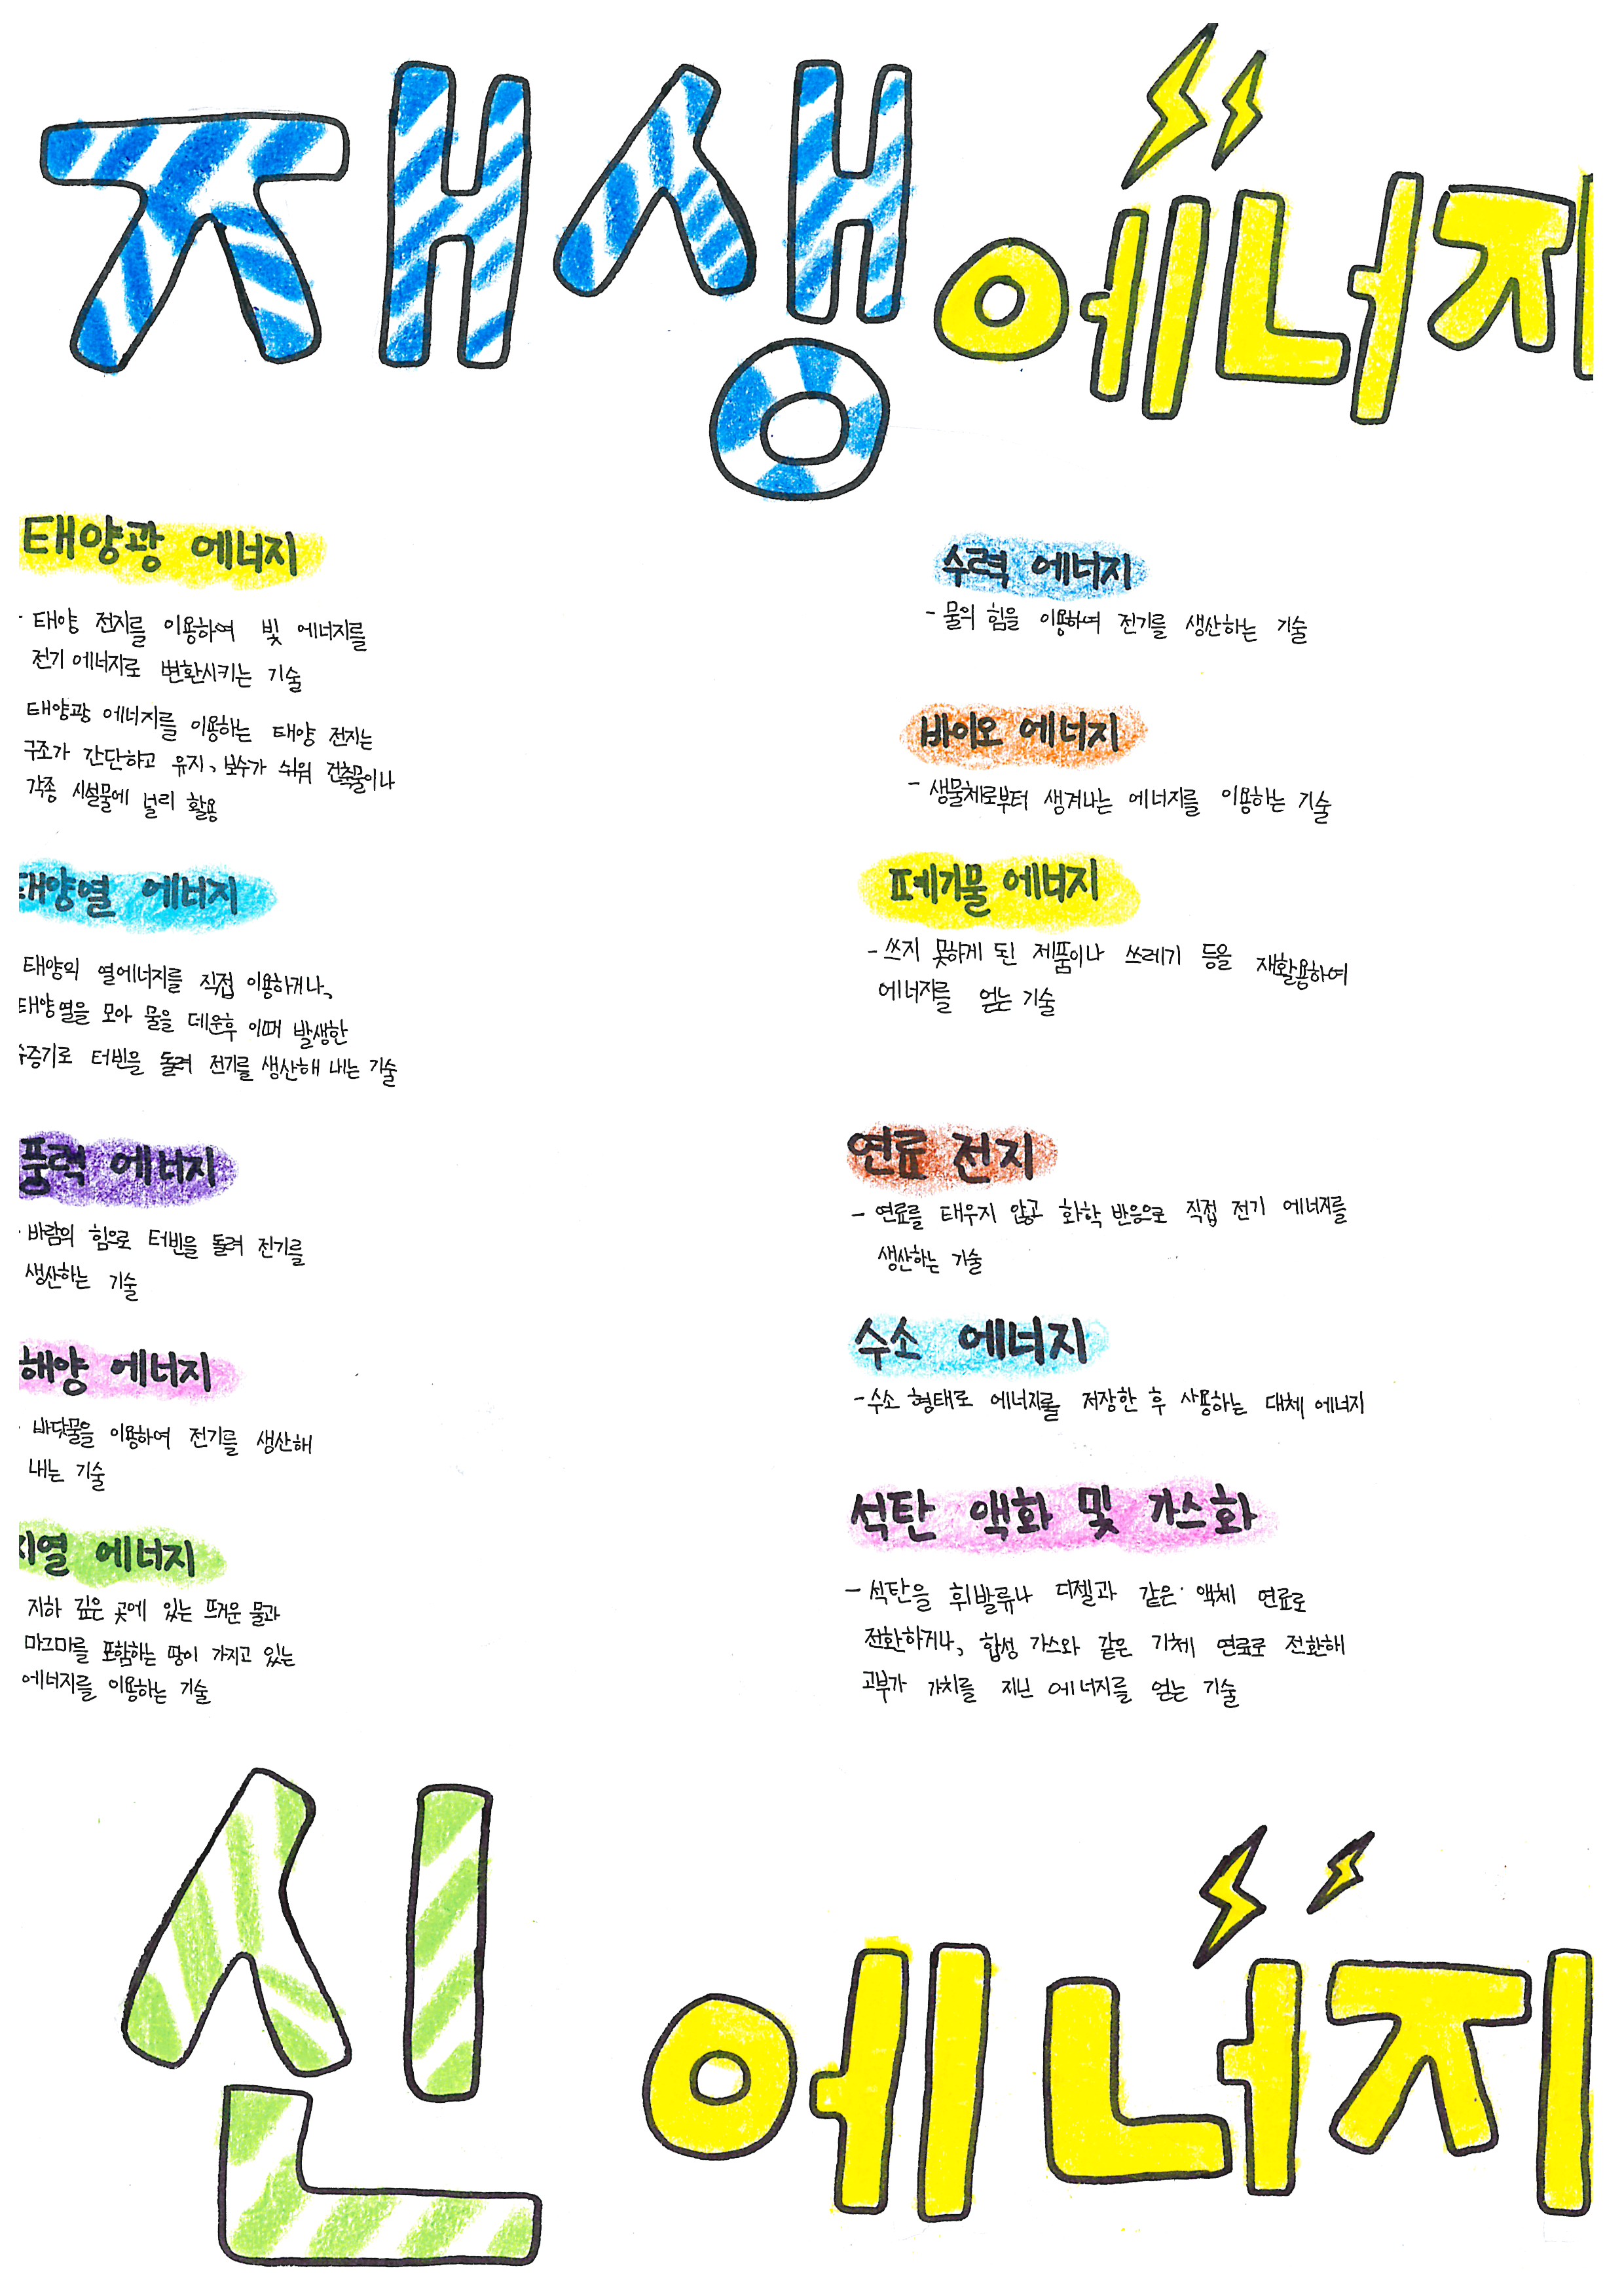 재생에너지
태양광 에너지
- 태양 전지를 이용하여 빛 에너지를
전기 에너지로 변환시키는 기술
태양광 에너지를 이용하는 태양 전지는
구조가 간단하고 유지, 보수가 쉬워 건축물이나
각종 시설물에 널리 활용
태양열 에너지
태양의 열에너지를 직접 이용하거나,
태양열을 모아 물을 데운후 이때 발생한
수증기로 터빈을 돌려 전기를 생산해 내는 기술
풍력 에너지
- 바람의 힘으로 터빈을 돌려 전기를
생산하는 기술
해양 에너지
- 바닷물을 이용하여 전기를 생산해
내는 기술
지열 에너지
지하 깊은 곳에 있는 뜨거운 물과
마그마를 포함하는 땅이 가지고 있는
에너지를 이용하는 기술
수력 에너지
- 물의 힘을 이용하여 전기를 생산하는 기술
바이오 에너지
- 생물체로부터 생겨나는 에너지를 이용하는 기술
폐기물 에너지
- 쓰지 못하게 된 제품이나 쓰레기 등을 재활용하여
에너지를 얻는 기술
연료 전지
- 연료를 태우지 않고 화학 반응으로 직접 전기 에너지를
생산하는 기술
수소 에너지
- 수소 형태로 에너지를 저장한 후 사용하는 대체 에너지
석탄 액화 및 가스화
- 석탄을 휘발류나 디젤과 같은 액체 연료로
전환하거나, 합성 가스와 같은 기체 연료로 전환해
고부가 가치를 지닌 에너지를 얻는 기술
신에너지